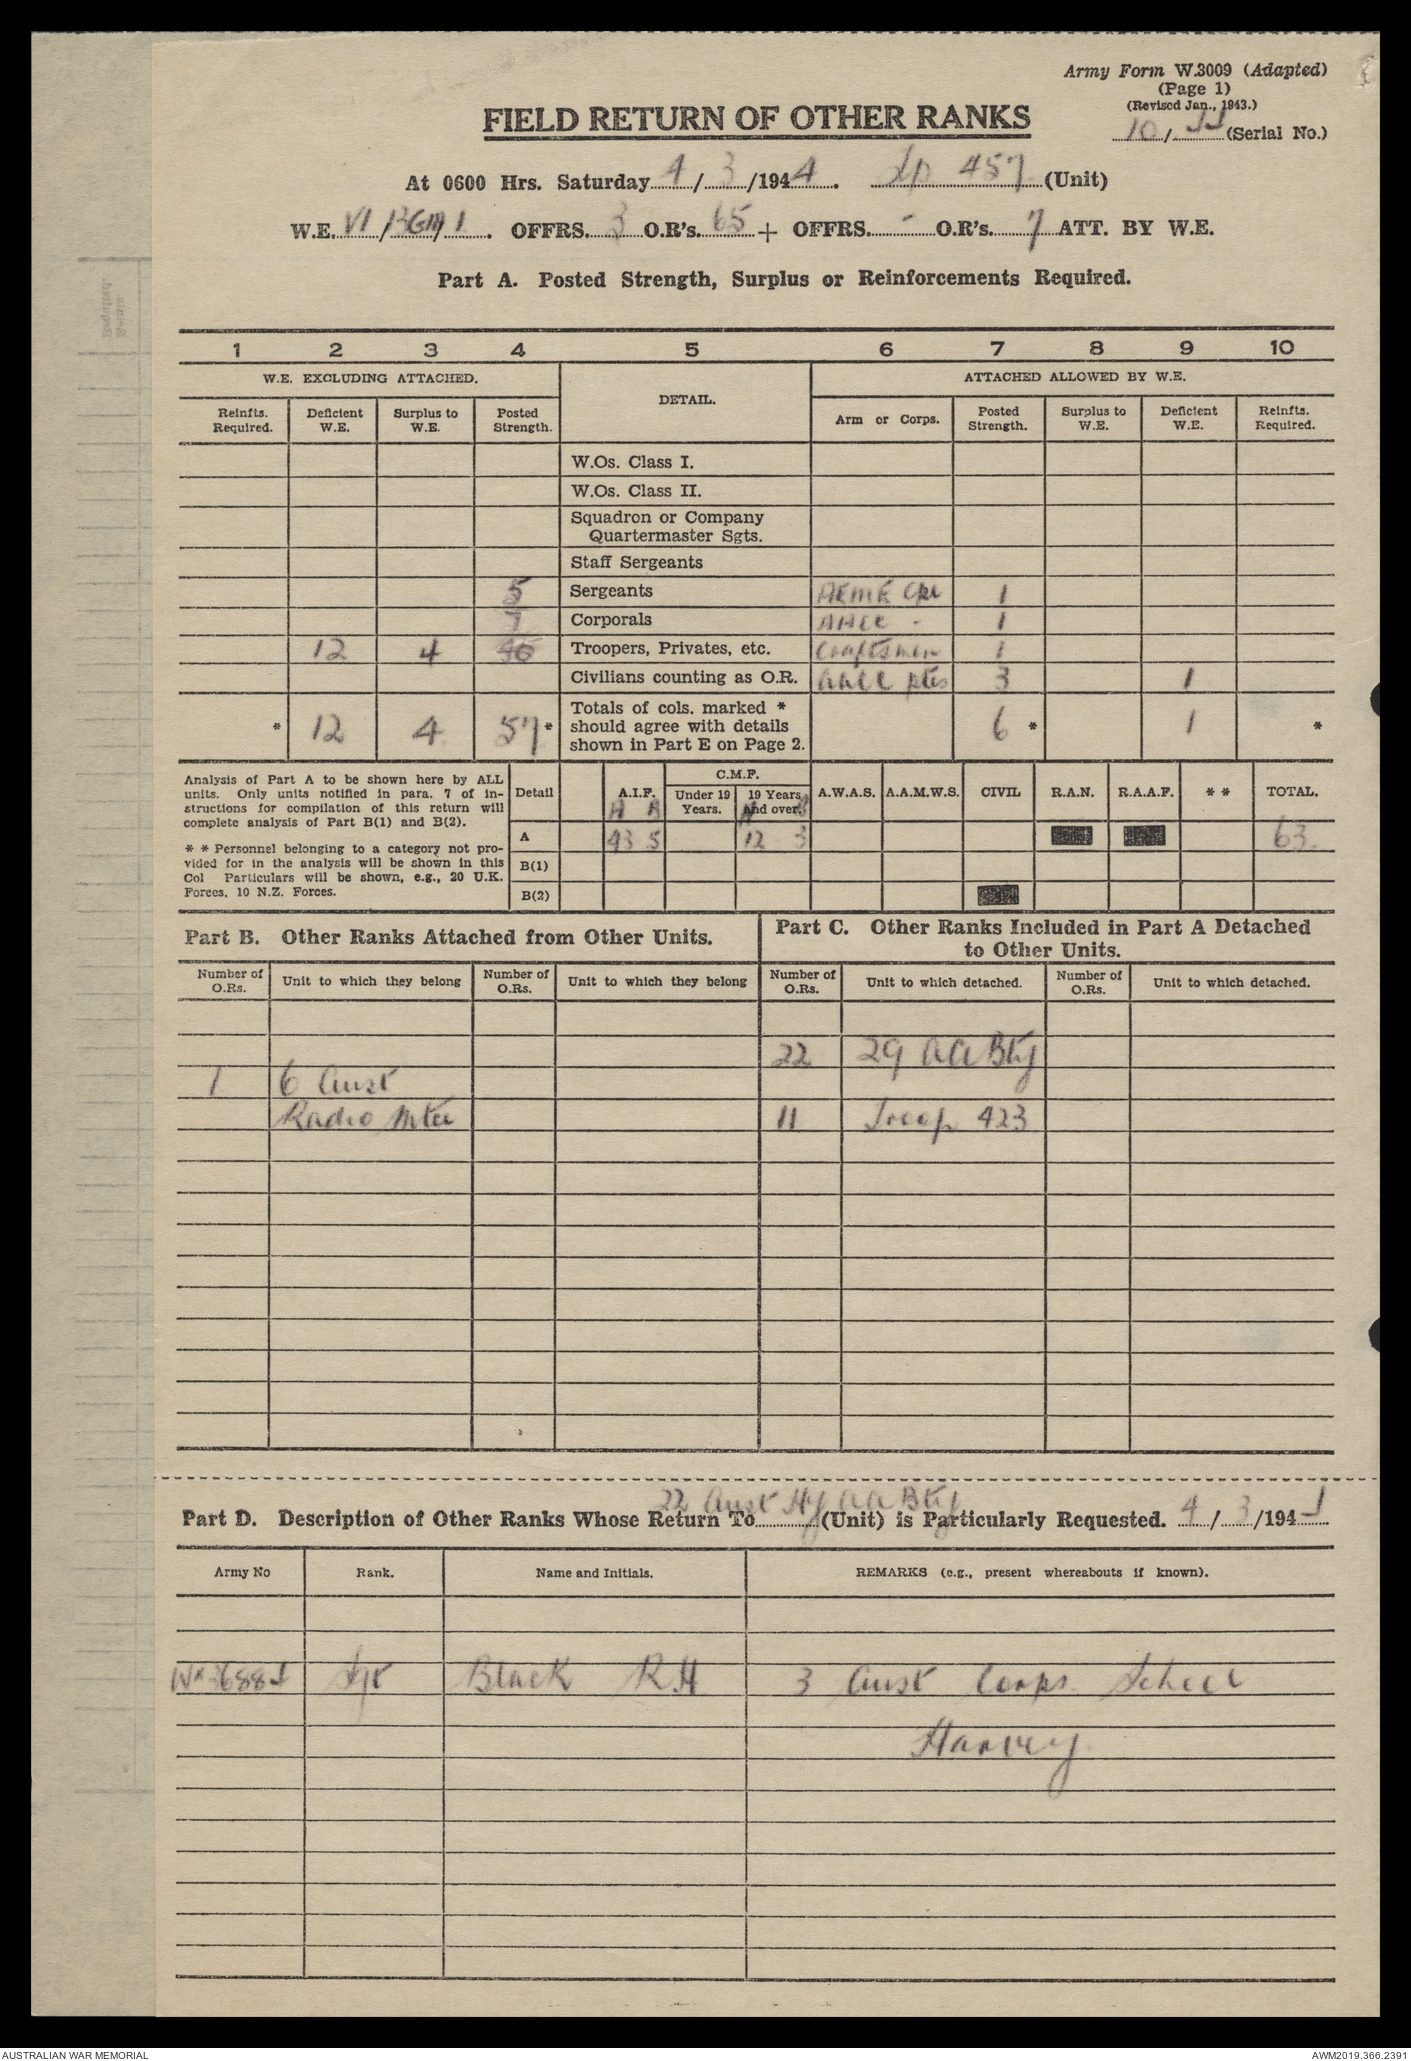 Army Form W.3009 (Adapted)
(Page 1)
(Revised Jan., 1943.)
FIELD RETURN OF OTHER RANKS
10/ (Serial No.)
At 0600 Hrs. Saturday 4/3/1944. Tp 457 (Unit)
W.E. VI / BGM / 1. OFFRS. 3 O.R's. 65 + OFFRS. - O.R's. 7 ATT. BY W.E.
Part A. Posted Strength, Surplus or Reinforcements Required.
1 2 3 4 5 6 7 8 9 10
W.E. EXCLUDING ATTACHED. DETAIL. ATTACHED ALLOWED BY W.E.
Reinfts. Required. Deficient W.E. Surplus to W.E. Posted Strength. Arm or Corps. Posted Strength. Surplus to W.E. Deficient W.E. Reinfts. Required.
W.Os. Class I.
W.Os. Class II.
Squadron or Company
Quartermaster Sgts.
Staff Sergeants
5 Sergeants AEME Cpl 1
7 Corporals AACC - 1
12 4 Troopers, Privates, etc. Craftsmen 1
Civilians counting as O.R. AACC ptes 3 1
* 12 4 57* Totals of cols. marked * should agree with details shown in Part E on Page 2. 6 * 1 *
Analysis of Part A to be shown here by ALL
units. Only units notified in para. 7 of in-
structions for compilation of this return will
complete analysis of Part B(1) and B(2).
* * Personnel belonging to a category not pro-
vided for in the analysis will be shown in this
Col Particulars will be shown, e.g., 20 U.K.
Forces, 10 N.Z. Forces.
Detail A.I.F. C.M.F. Under 19 Years. 19 Years and over. A.W.A.S. A.A.M.W.S. CIVIL R.A.N. R.A.A.F. * * TOTAL.
A B A B
A 43 5 12 3 63
B(1)
B(2)
Part B. Other Ranks Attached from Other Units.
Part C. Other Ranks Included in Part A Detached
to Other Units.
Number of O.Rs. Unit to which they belong Number of O.Rs. Unit to which they belong Number of O.Rs. Unit to which detached. Number of O.Rs. Unit to which detached.
22 29 AA Bty
1 6 Aust
Radio Mtce 11 Troop 423
22 Aust Hy AA Bty
Part D. Description of Other Ranks Whose Return To (Unit) is Particularly Requested. 4/3/194
Army No Rank. Name and Initials. REMARKS (e.g., present whereabouts if known).
Sgt Black R.H 3 Aust Corps School
Harvey
AUSTRALIAN WAR MEMORIAL AWM2019.366.2391